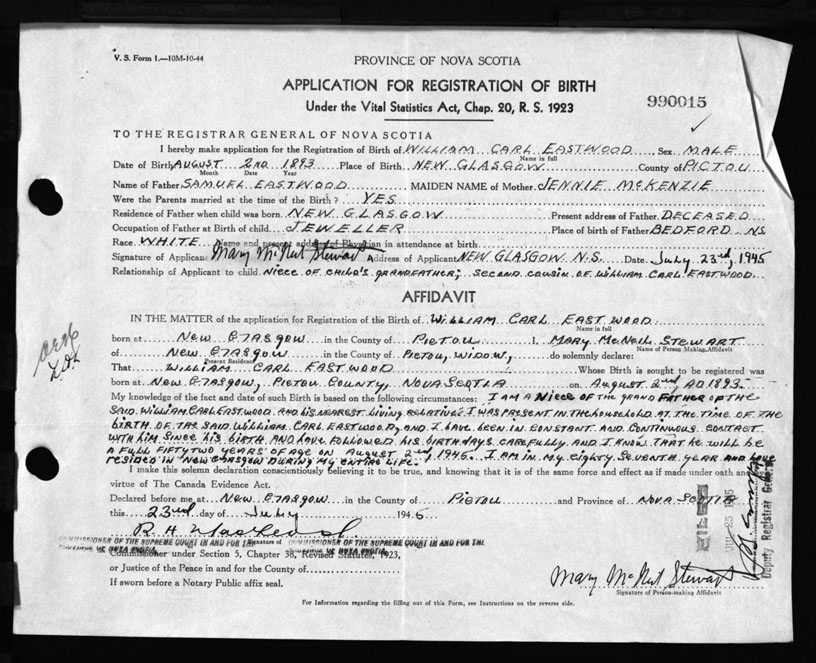 V. S. Form 1.—10M-10-44
PROVINCE OF NOVA SCOTIA
APPLICATION FOR REGISTRATION OF BIRTH
Under the Vital Statistics Act, Chap. 20, R. S. 1923
990015
TO THE REGISTRAR GENERAL OF NOVA SCOTIA
I hereby make application for the Registration of Birth of WILLIAM CARL EASTWOOD Sex MALE
Name in full
Date of Birth AUGUST 2ND 1893 Place of Birth NEW GLASGOW County of PICTOU
Month Date Year
Name of Father SAMUEL EASTWOOD MAIDEN NAME of Mother JENNIE McKENZIE
Were the Parents married at the time of the Birth? YES
Residence of Father when child was born NEW GLASGOW Present address of Father DECEASED
Occupation of Father at Birth of child JEWELLER Place of birth of Father BEDFORD N.S.
Race WHITE Name and present address of Physician in attendance at birth
Signature of Applicant Mary McNeil Stewart Address of Applicant NEW GLASGOW N.S. Date July 23rd, 1945
Relationship of Applicant to child NIECE OF CHILD'S GRANDFATHER; SECOND COUSIN OF WILLIAM CARL EASTWOOD.
AFFIDAVIT
IN THE MATTER of the application for Registration of the Birth of WILLIAM CARL EASTWOOD
Name in full
born at NEW GLASGOW in the County of PICTOU I, MARY McNEIL STEWART
Name of Person Making Affidavit
of NEW GLASGOW in the County of PICTOU, WIDOW, do solemnly declare:
Present Residence
That WILLIAM CARL EASTWOOD Whose Birth is sought to be registered was
born at NEW GLASGOW, PICTOU COUNTY, NOVA SCOTIA on AUGUST 2nd, AD 1893.
My knowledge of the fact and date of such Birth is based on the following circumstances: I AM A NIECE OF THE GRAND FATHER OF THE
SAID WILLIAM CARL EASTWOOD AND HIS NEAREST LIVING RELATIVE. I WAS PRESENT IN THE HOUSEHOLD AT THE TIME OF THE
BIRTH OF THE SAID WILLIAM CARL EASTWOOD, AND I HAVE BEEN IN CONSTANT AND CONTINUOUS CONTACT
WITH HIM SINCE HIS BIRTH AND HAVE FOLLOWED HIS BIRTHDAYS CAREFULLY AND I KNOW THAT HE WILL BE
A FULL FIFTY TWO YEARS OF AGE ON AUGUST 2nd, 1945. I AM IN MY EIGHTY SEVENTH YEAR AND HAVE
RESIDED IN NEW GLASGOW DURING MY ENTIRE LIFE.
I make this solemn declaration conscientiously believing it to be true, and knowing that it is of the same force and effect as if made under oath and by
virtue of The Canada Evidence Act.
Declared before me at NEW GLASGOW in the County of PICTOU and Province of NOVA SCOTIA
this 23rd day of July 1945
R H MacLeod
Signature of
COMMISSIONER OF THE SUPREME COURT IN AND FOR THE
PROVINCE OF NOVA SCOTIA
COMMISSIONER OF THE SUPREME COURT IN AND FOR THE
PROVINCE OF NOVA SCOTIA
Commissioner under Section 5, Chapter 38, Revised Statutes, 1923,
or Justice of the Peace in and for the County of
If sworn before a Notary Public affix seal.
Mary McNeil Stewart
Signature of Person-making Affidavit
For Information regarding the filling out of this Form, see Instructions on the reverse side.
Deputy Registrar General